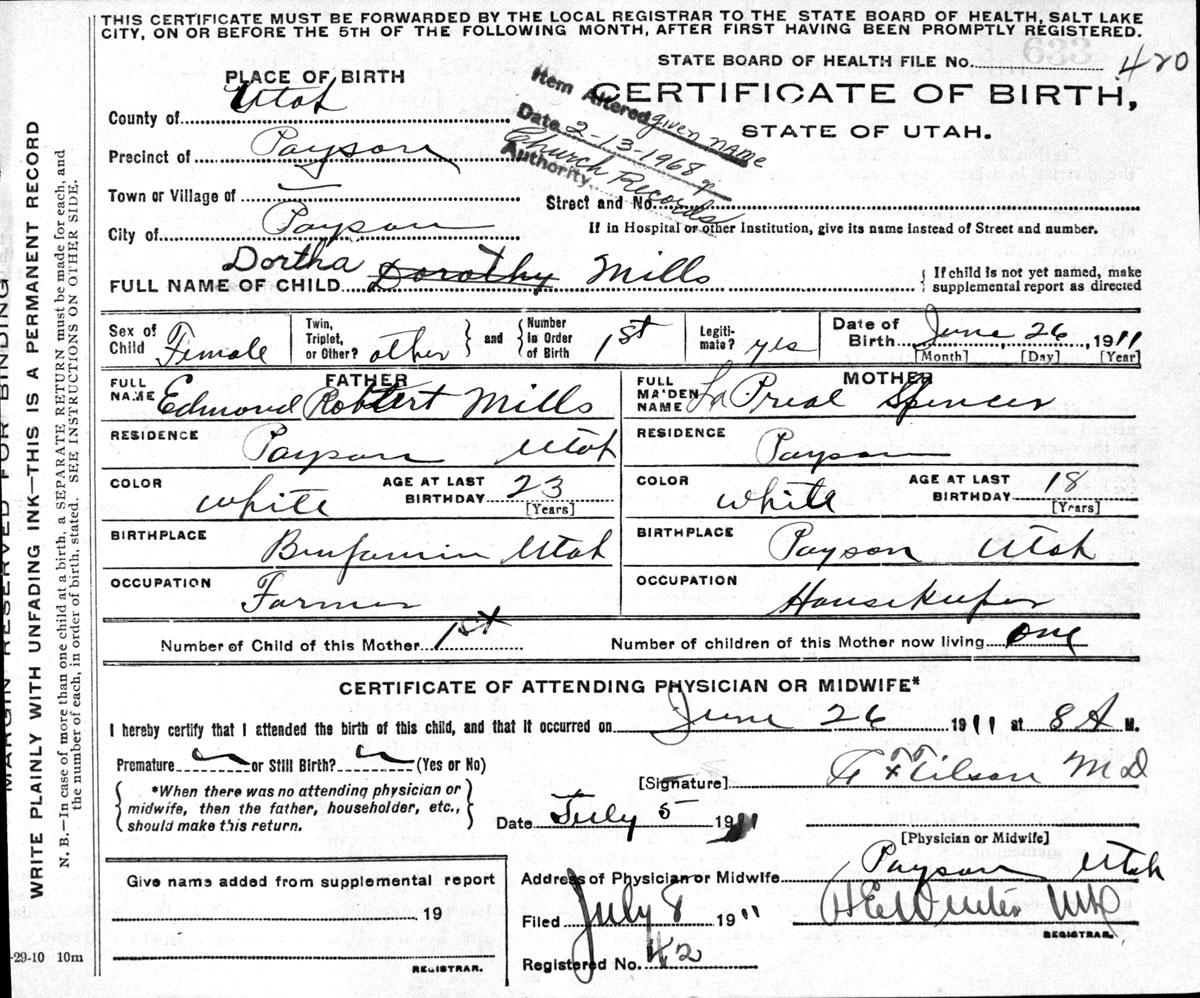 THIS CERTIFICATE MUST BE FORWARDED BY THE LOCAL REGISTRAR TO THE STATE BOARD OF HEALTH, SALT LAKE
CITY, ON OR BEFORE THE 5TH OF THE FOLLOWING MONTH, AFTER FIRST HAVING BEEN PROMPTLY REGISTERED.
STATE BOARD OF HEALTH FILE No. 420
PLACE OF BIRTH
CERTIFICATE OF BIRTH,
STATE OF UTAH.
Item Altered given name
Date 2-13-1968
Church Records
Authority
County of Utah
Precinct of Payson
Town or Village of
Street and No.
City of Payson
If in Hospital or other Institution, give its name instead of Street and number.
Dortha
FULL NAME OF CHILD Dorothy Mills
If child is not yet named, make
supplemental report as directed
Sex of Child Female
Twin, Triplet, or Other? other
and Number in Order of Birth 1st
Legiti-mate? yes
Date of Birth June 26, 1911
[Month] [Day] [Year]
FATHER
FULL NAME Edmond Robert Mills
MOTHER
FULL MAIDEN NAME La Preal Spencer
RESIDENCE Payson Utah
RESIDENCE Payson
COLOR white AGE AT LAST BIRTHDAY 23 [Years]
COLOR white AGE AT LAST BIRTHDAY 18 [Years]
BIRTHPLACE Benjamin Utah
BIRTHPLACE Payson Utah
OCCUPATION Farmer
OCCUPATION Housekeeper
Number of Child of this Mother 1st Number of children of this Mother now living one
CERTIFICATE OF ATTENDING PHYSICIAN OR MIDWIFE*
I hereby certify that I attended the birth of this child, and that it occurred on June 26 1911 at 8 A M.
Premature or Still Birth? (Yes or No)
*When there was no attending physician or
midwife, then the father, householder, etc.,
should make this return.
[Signature] Tilson MD
Date July 5 1911
[Physician or Midwife]
Address of Physician or Midwife Payson Utah
Filed July 8 1911
REGISTRAR.
Registered No. 42
Give name added from supplemental report
19
REGISTRAR.
-29-10 10m
MARGIN RESERVED FOR BINDING
WRITE PLAINLY WITH UNFADING INK—THIS IS A PERMANENT RECORD
N. B.—In case of more than one child at a birth, a SEPARATE RETURN must be made for each, and
the number of each, in order of birth, stated. SEE INSTRUCTIONS ON OTHER SIDE.